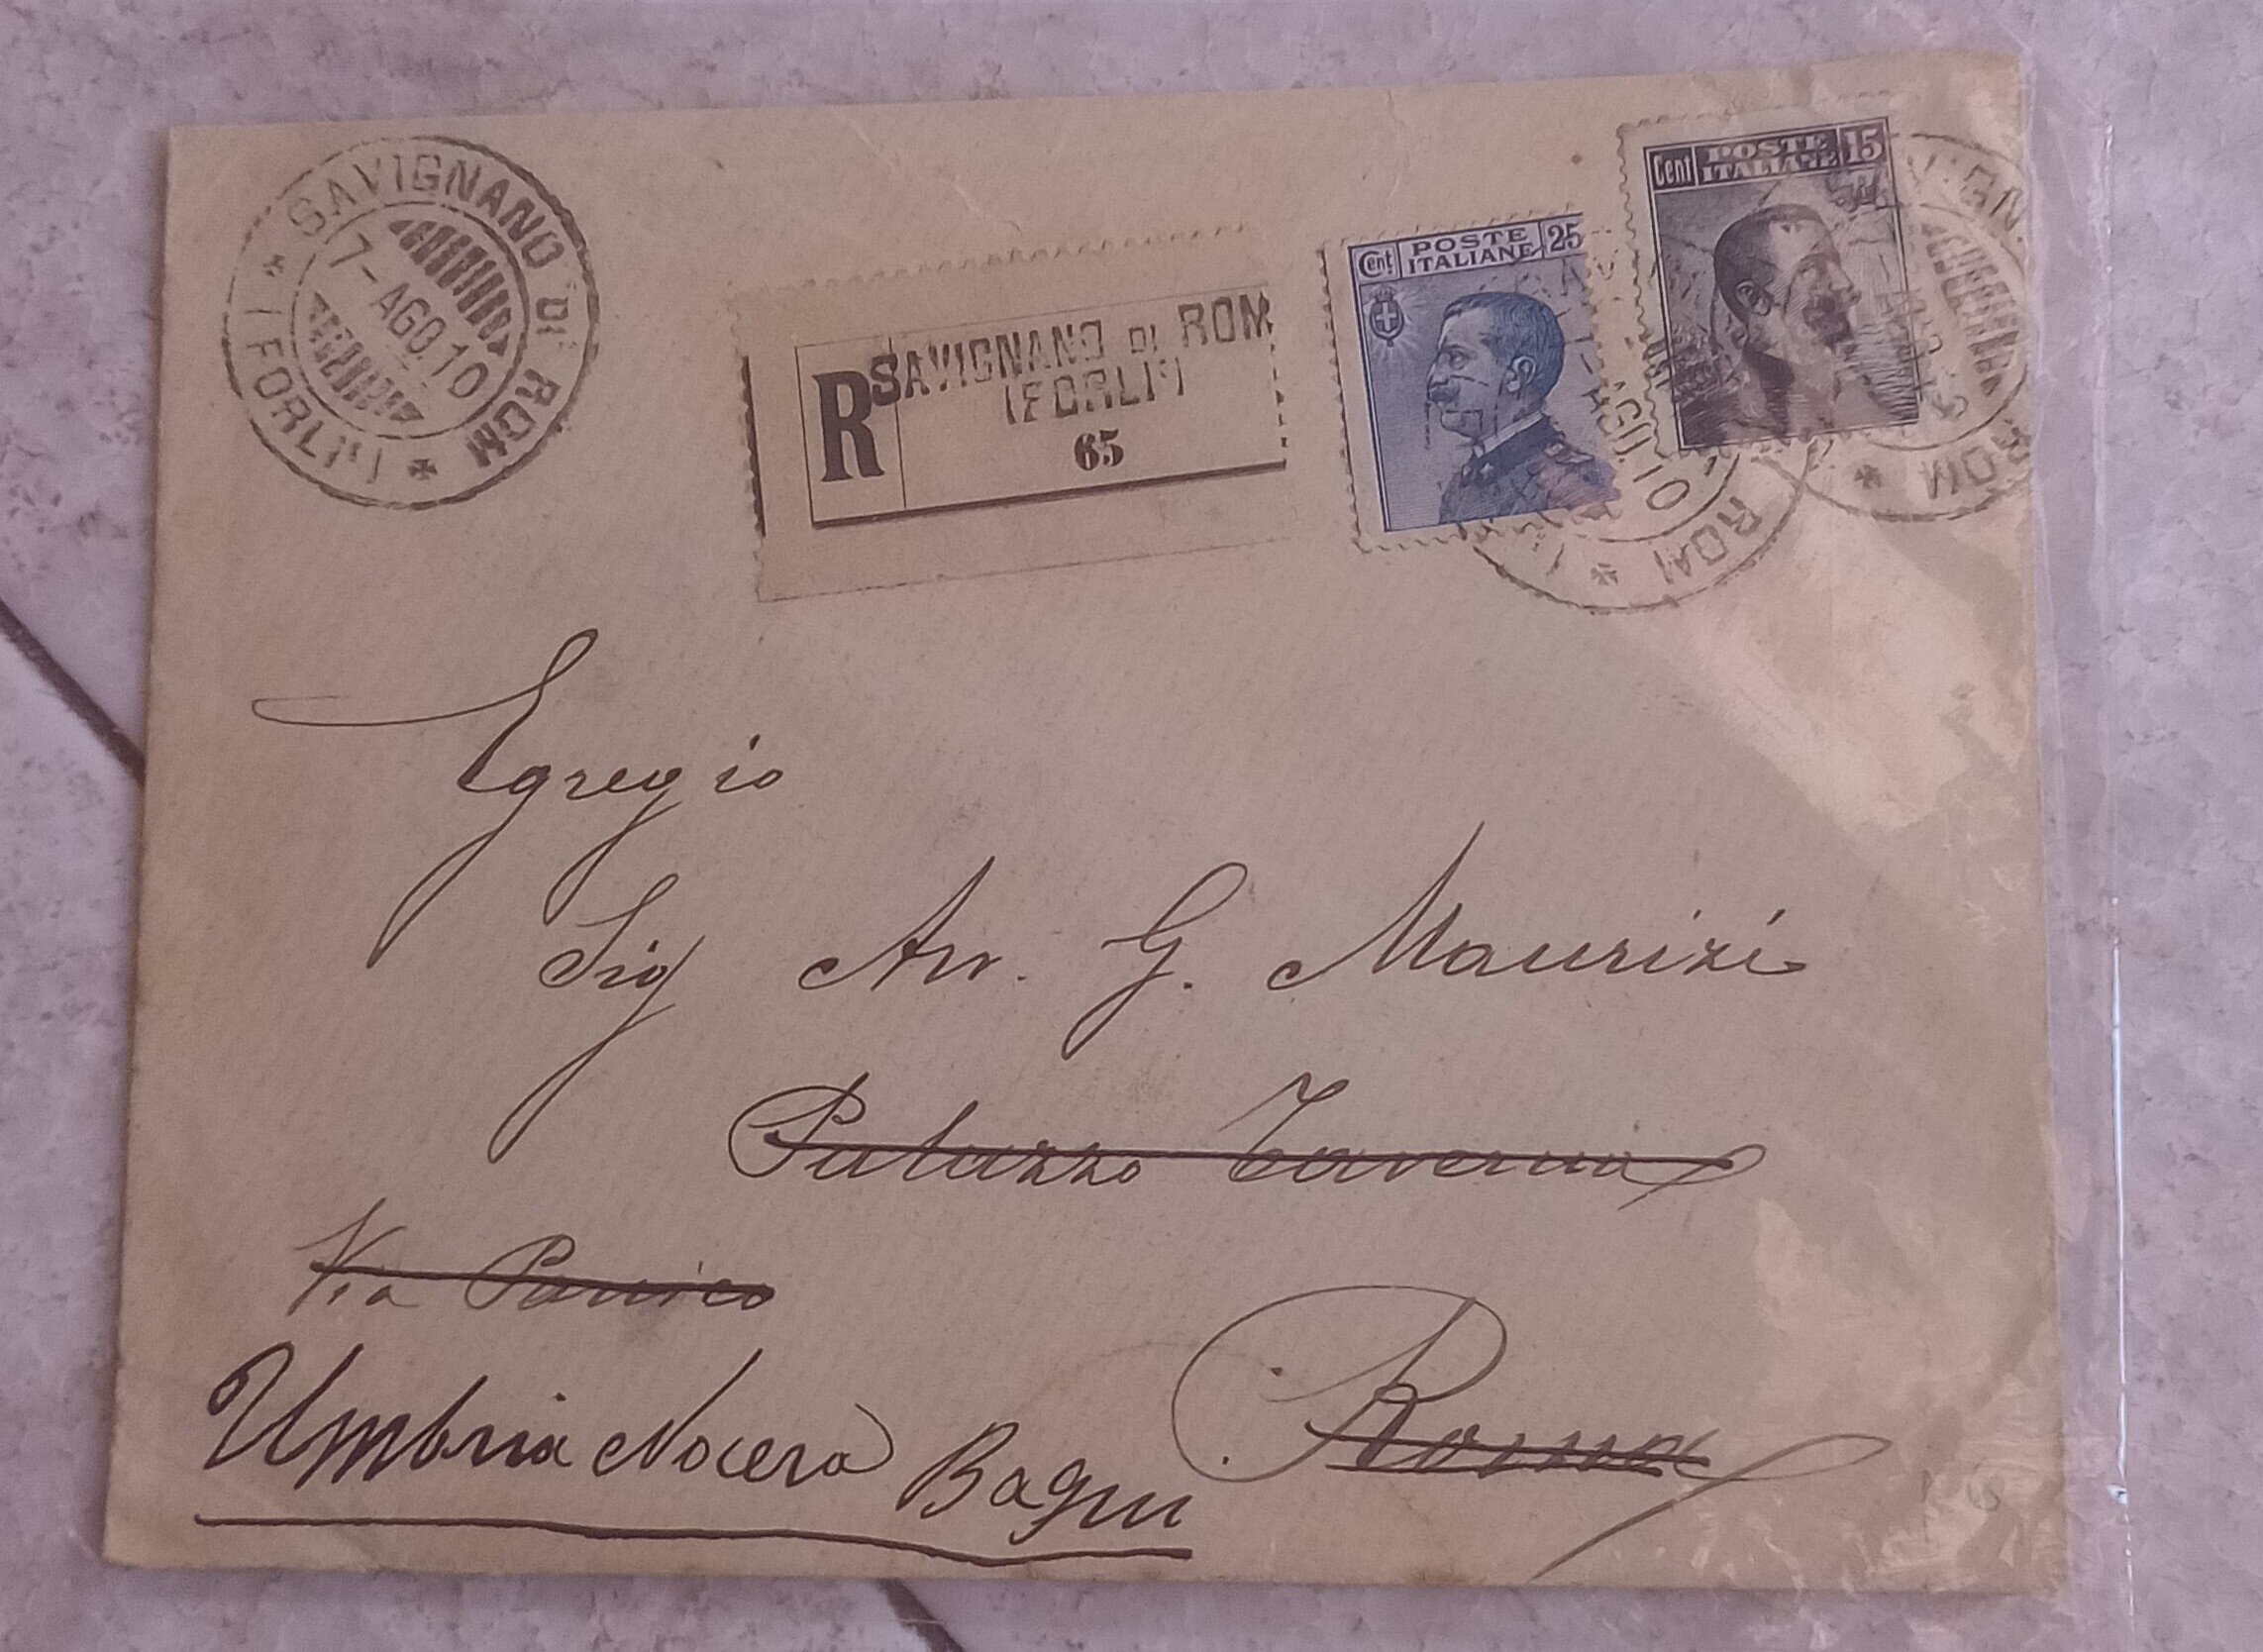 SAVIGNANO DI ROM
(FORLI')
7-AGO.10
R
SAVIGNANO DI ROM
(FORLI')
65
Cent POSTE ITALIANE 25
Cent POSTE ITALIANE 15
AGO.10
ROM
ROM
Egregio
Sig Avv. G. Maurizi
Palazzo Taverna
Via Panico
Roma
Umbria Nocera Bagni